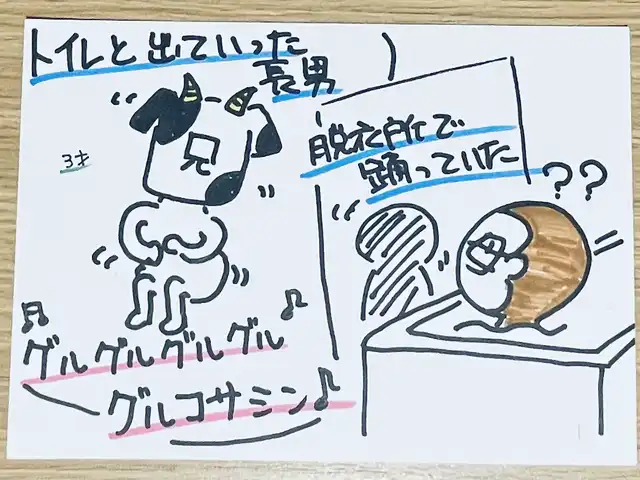 トイレと出ていった
長男
3才
兄
脱衣所で
踊っていた
??
グルグルグルグル
グルコサミン♪